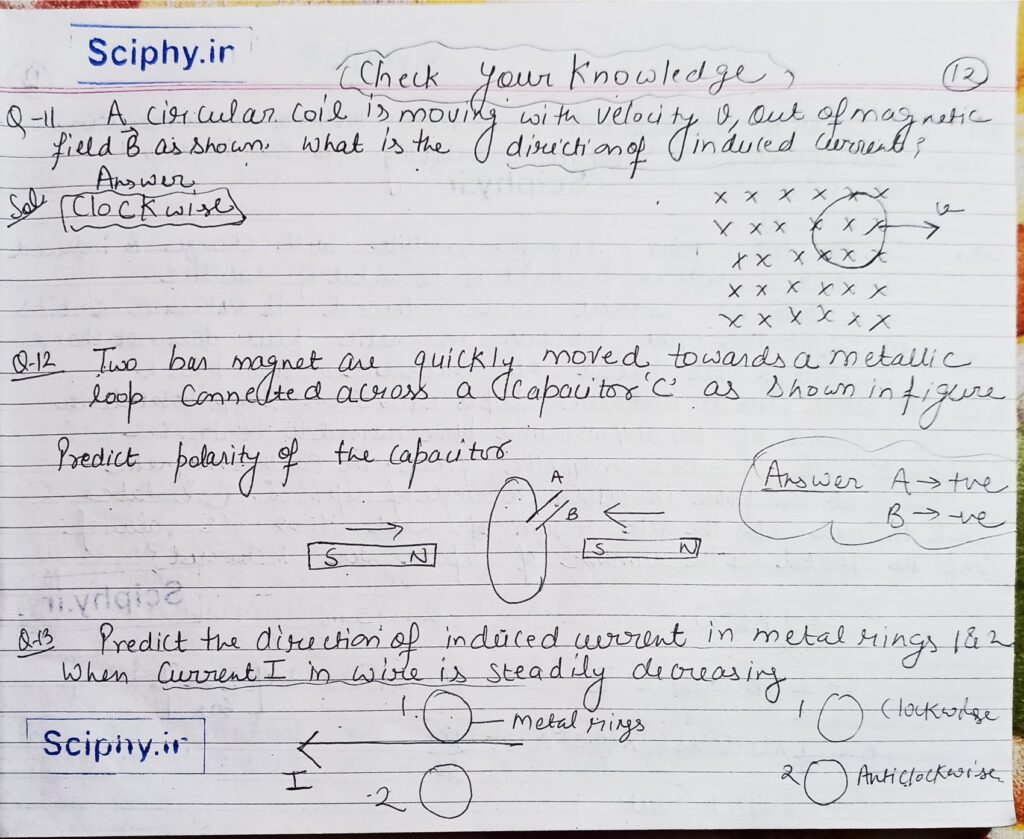 Sciphy.in
Check Your Knowledge
12
Q-11 A circular coil is moving with velocity v, out of magnetic
field B as shown. What is the direction of induced current?
Answer
Sol Clockwise
x x x x x x
v
x x x x x x
x x x x x x
x x x x x x
x x x x x x
Q-12 Two bar magnet are quickly moved towards a metallic
loop connected across a capacitor 'C' as shown in figure
Predict polarity of the capacitor.
Answer A → +ve
B → -ve
A
B
S N
S N
Q-13 Predict the direction of induced current in metal rings 1 & 2
When current I in wire is steadily decreasing
1. Metal rings
1 Clockwise
Sciphy.in
I
2
2 Anticlockwise